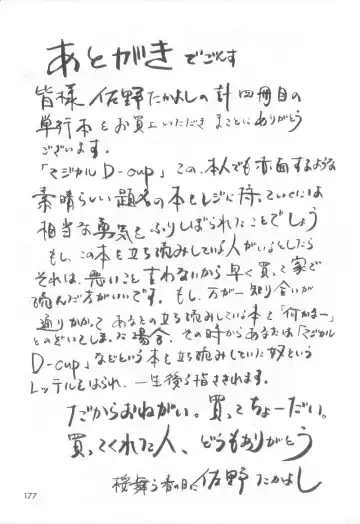 あとがきでごんす
皆様佐野たかよしの計四冊目の
単行本をお買上いただきまことにありがとう
ございます。
「マジカルD-cup」この、本人でも赤面するような
素晴らしい題名の本をレジに持っていくには
相当な勇気をふりしぼられたことでしょう
もし、この本を立ち読みしている人がいるとしたら
それは、悪いこと言わないから早く買って家で
読んだ方がいいです。もし、万が一知り合いが
通りかかって あなたの立ち読みしている本を「何かなー」
とのぞいてしまった場合、その時からあなたは「マジカル
D-cup」などという本を立ち読みしていた奴という
レッテルをはられ、一生後ろ指さされます。
だからおねがい。買ってちょーだい。
買ってくれた人、どうもありがとう
桜舞う春の日に 佐野たかよし
177